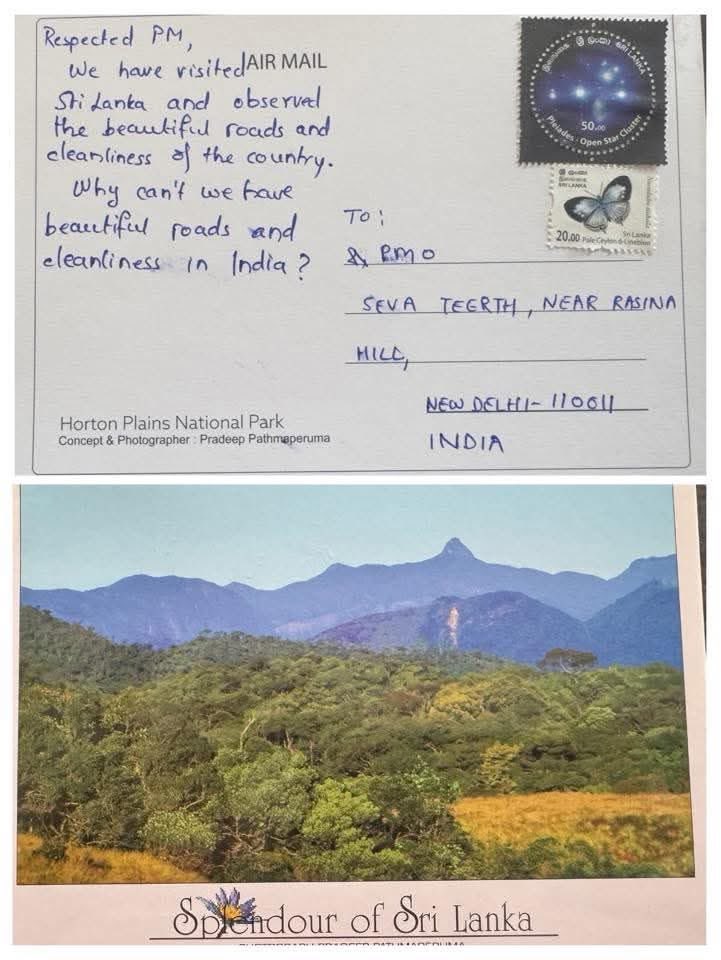 Respected PM,
AIR MAIL
We have visited
Sri Lanka and observed
the beautiful roads and
cleanliness of the country.
Why can't we have
beautiful roads and
cleanliness in India?
இலங்கை ශ්‍රී ලංකා SRI LANKA
50.00
Pleiades - Open Star Cluster
ශ්‍රී ලංකා
இலங்கை
SRI LANKA
Sri Lanka
20.00 Pale Ceylon 6-Lineblue
To:
PMO
SEVA TEERTH, NEAR RASINA
HILL,
NEW DELHI-110011
INDIA
Horton Plains National Park
Concept & Photographer : Pradeep Pathmaperuma
Splendour of Sri Lanka
PHOTOGRAPH PRADEEP PATHMAPERUMA